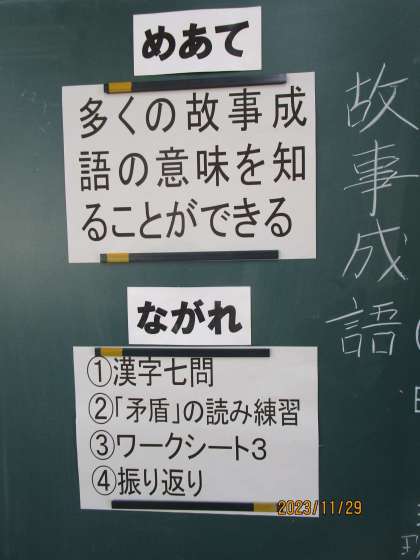 めあて
多くの故事成
語の意味を知
ることができる
ながれ
①漢字七問
②「矛盾」の読み練習
③ワークシート3
④振り返り
故事成語
2023/11/29